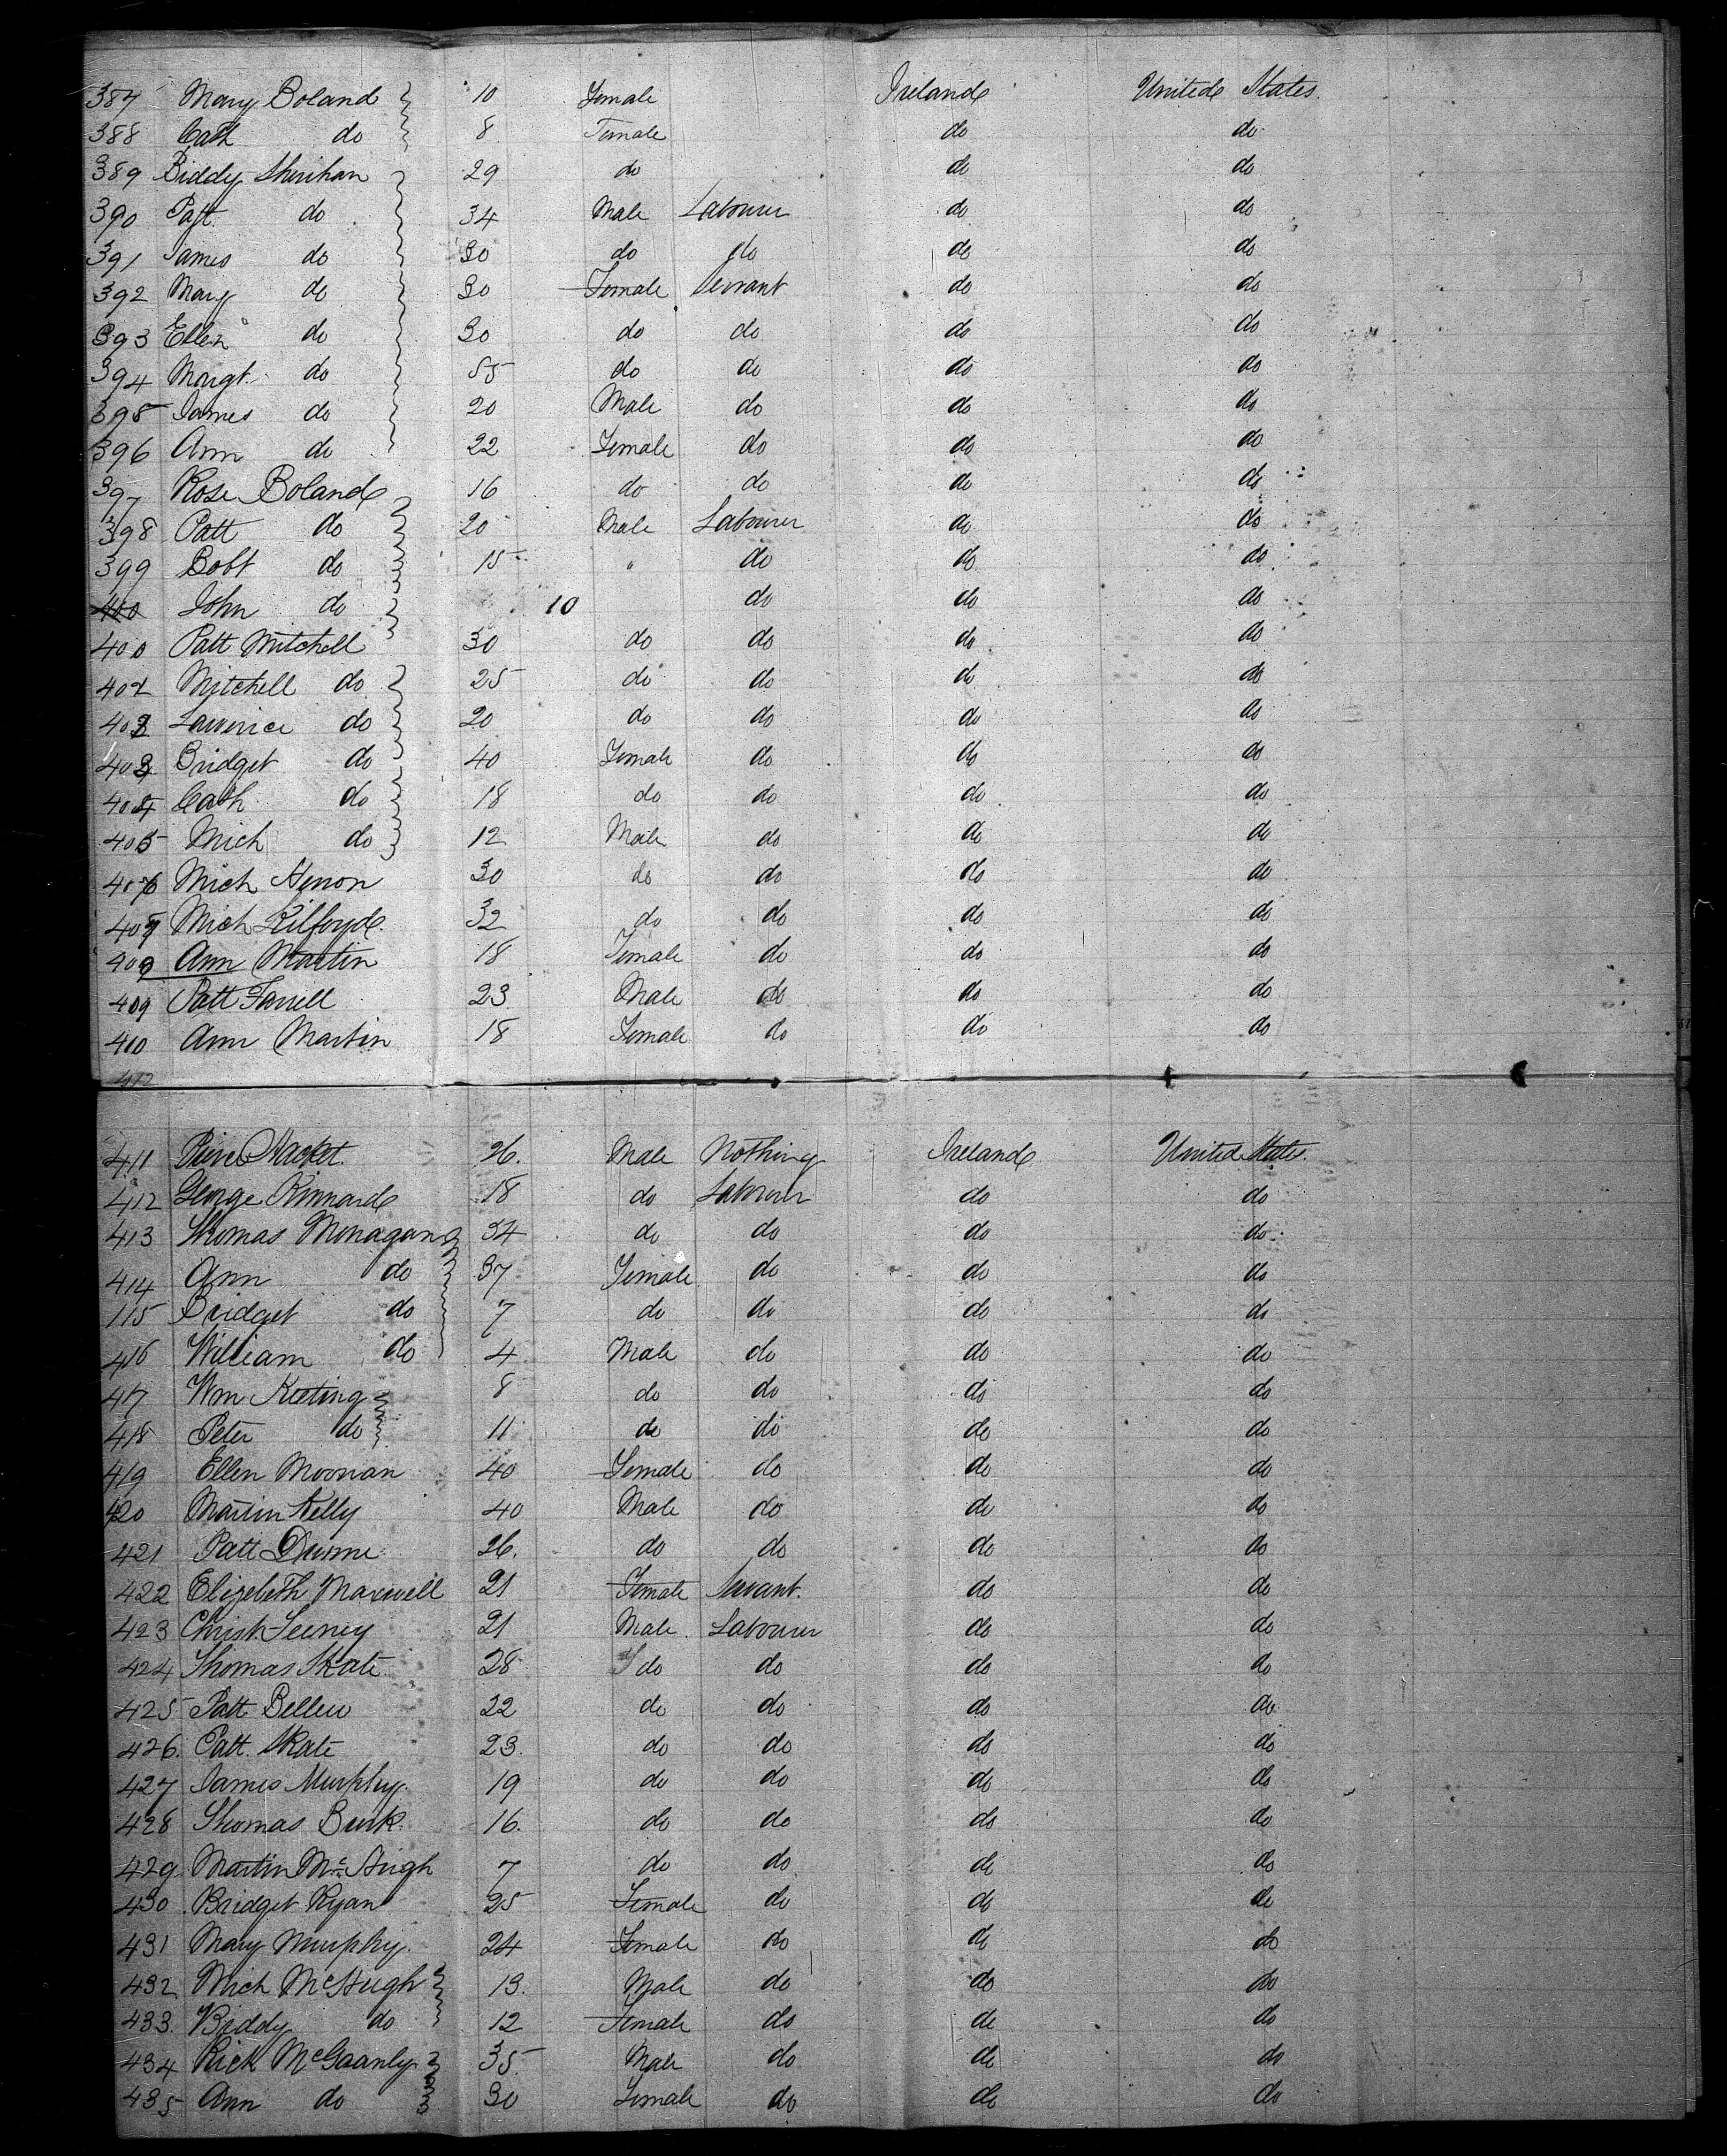 387 Mary Boland 10 Female Ireland United States
388 Cath do 8 Female do do
389 Biddy Sherihan 29 do do do
390 Patt do 34 Male Labourer do do
391 James do 30 do do do do
392 Mary do 30 Female Servant do do
393 Ellen do 30 do do do do
394 Margt. do 55 do do do do
395 James do 20 Male do do do
396 Ann do 22 Female do do do
397 Rose Boland 16 do do do do
398 Patt do 20 Male Labourer do do
399 Robt do 15 " do do do
400 John do 10 do do do
400 Patt Mitchell 30 do do do do
402 Mitchell do 25 do do do do
402 Lawrence do 20 do do do do
403 Bridget do 40 Female do do do
404 Cath do 18 do do do do
405 Mich do 12 Male do do do
406 Mich Henon 30 do do do do
407 Mich Kilfoyde 32 do do do do
409 Ann Martin 18 Female do do do
409 Patt Farrell 23 Male do do do
410 Ann Martin 18 Female do do do
412
411 Hacket 26. Male Nothing Ireland United States
412 George Kinnard 18 do Labourer do do
413 Thomas Monagan 34 do do do do
414 Ann do 37 Female do do do
115 Bridget do 7 do do do do
416 William do 4 Male do do do
417 Wm Keeting 8 do do do do
418 Peter do 11 do do do do
419 Ellen Moonan 40 Female do do do
420 Martin Kelly 40 Male do do do
421 Patt Dunne 26. do do do do
422 Elizebeth Maxwell 21 Female Servant. do do
423 Christ. Feeney 21 Male Labourer do do
424 Thomas Skate 28 do do do do
425 Patt Bellew 22 do do do do
426. Patt. Skate 23. do do do do
427 James Murphy 19 do do do do
428 Thomas Burk. 16. do do do do
429 Martin McHugh 7 do do do do
430 Bridget Ryan 25 Female do do do
431 Mary Murphy. 24 Female do do do
432 Mich McHugh 13. Male do do do
433. Biddy do 12 Female do do do
434 Rick McGaanly 35 Male do do do
435 Ann do 30 Female do do do